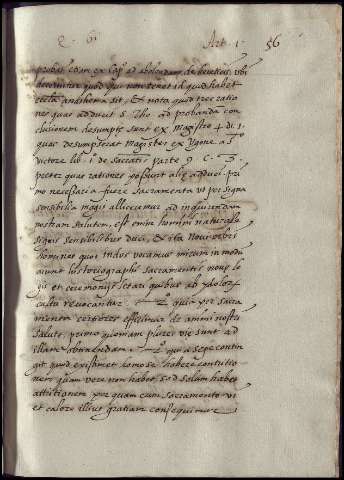 Q. 61 Art. 1. 56
probat etiam ex cap. ad abolendam de hereticis, ubi
decernitur quod qui non tenet id quod habet
eccla anathema sit, & nota quod tres ratio
nes quas adducit S. Tho. ad probandam con
clusionem desumptæ sunt ex magistro 4. di. 1.
quas desumpserat magister ex Hugone a Sto
victore lib. 1. de sacratis parte 9. c. 3.
preter quas rationes possunt aliæ adduci. pri
mo necessaria fuere sacramenta ut per signa
sensibilia magis alliceremur ad inquirendam
nostram salutem, est enim homini naturale
signis sensibilibus duci, & ita novi orbis
homines quos Indos vocamus mirum in modū
aiunt historiographi sacramentis novæ le
gis et ceremonijs lætari quibus ab ydolor.
cultu revocantur. 2º quia per sacra
menta certiores efficimur de animi nostri
salute. primo quoniam plures viæ sunt ad
illam obtinendam. 2º quia sepe contin
git quod existimet homo se habere contritio
nem quam vere non habet sed solum habet
attritionem per quam cum sacramento vi
et calore illius gratiam consequimur